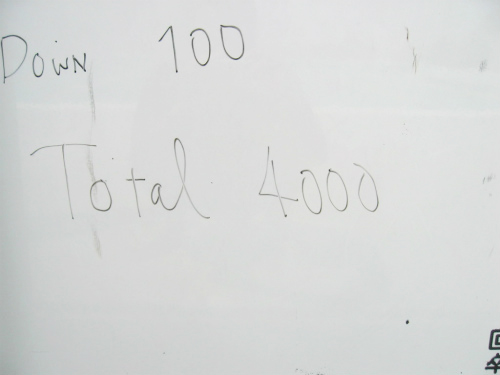 Down 100
Total 4000